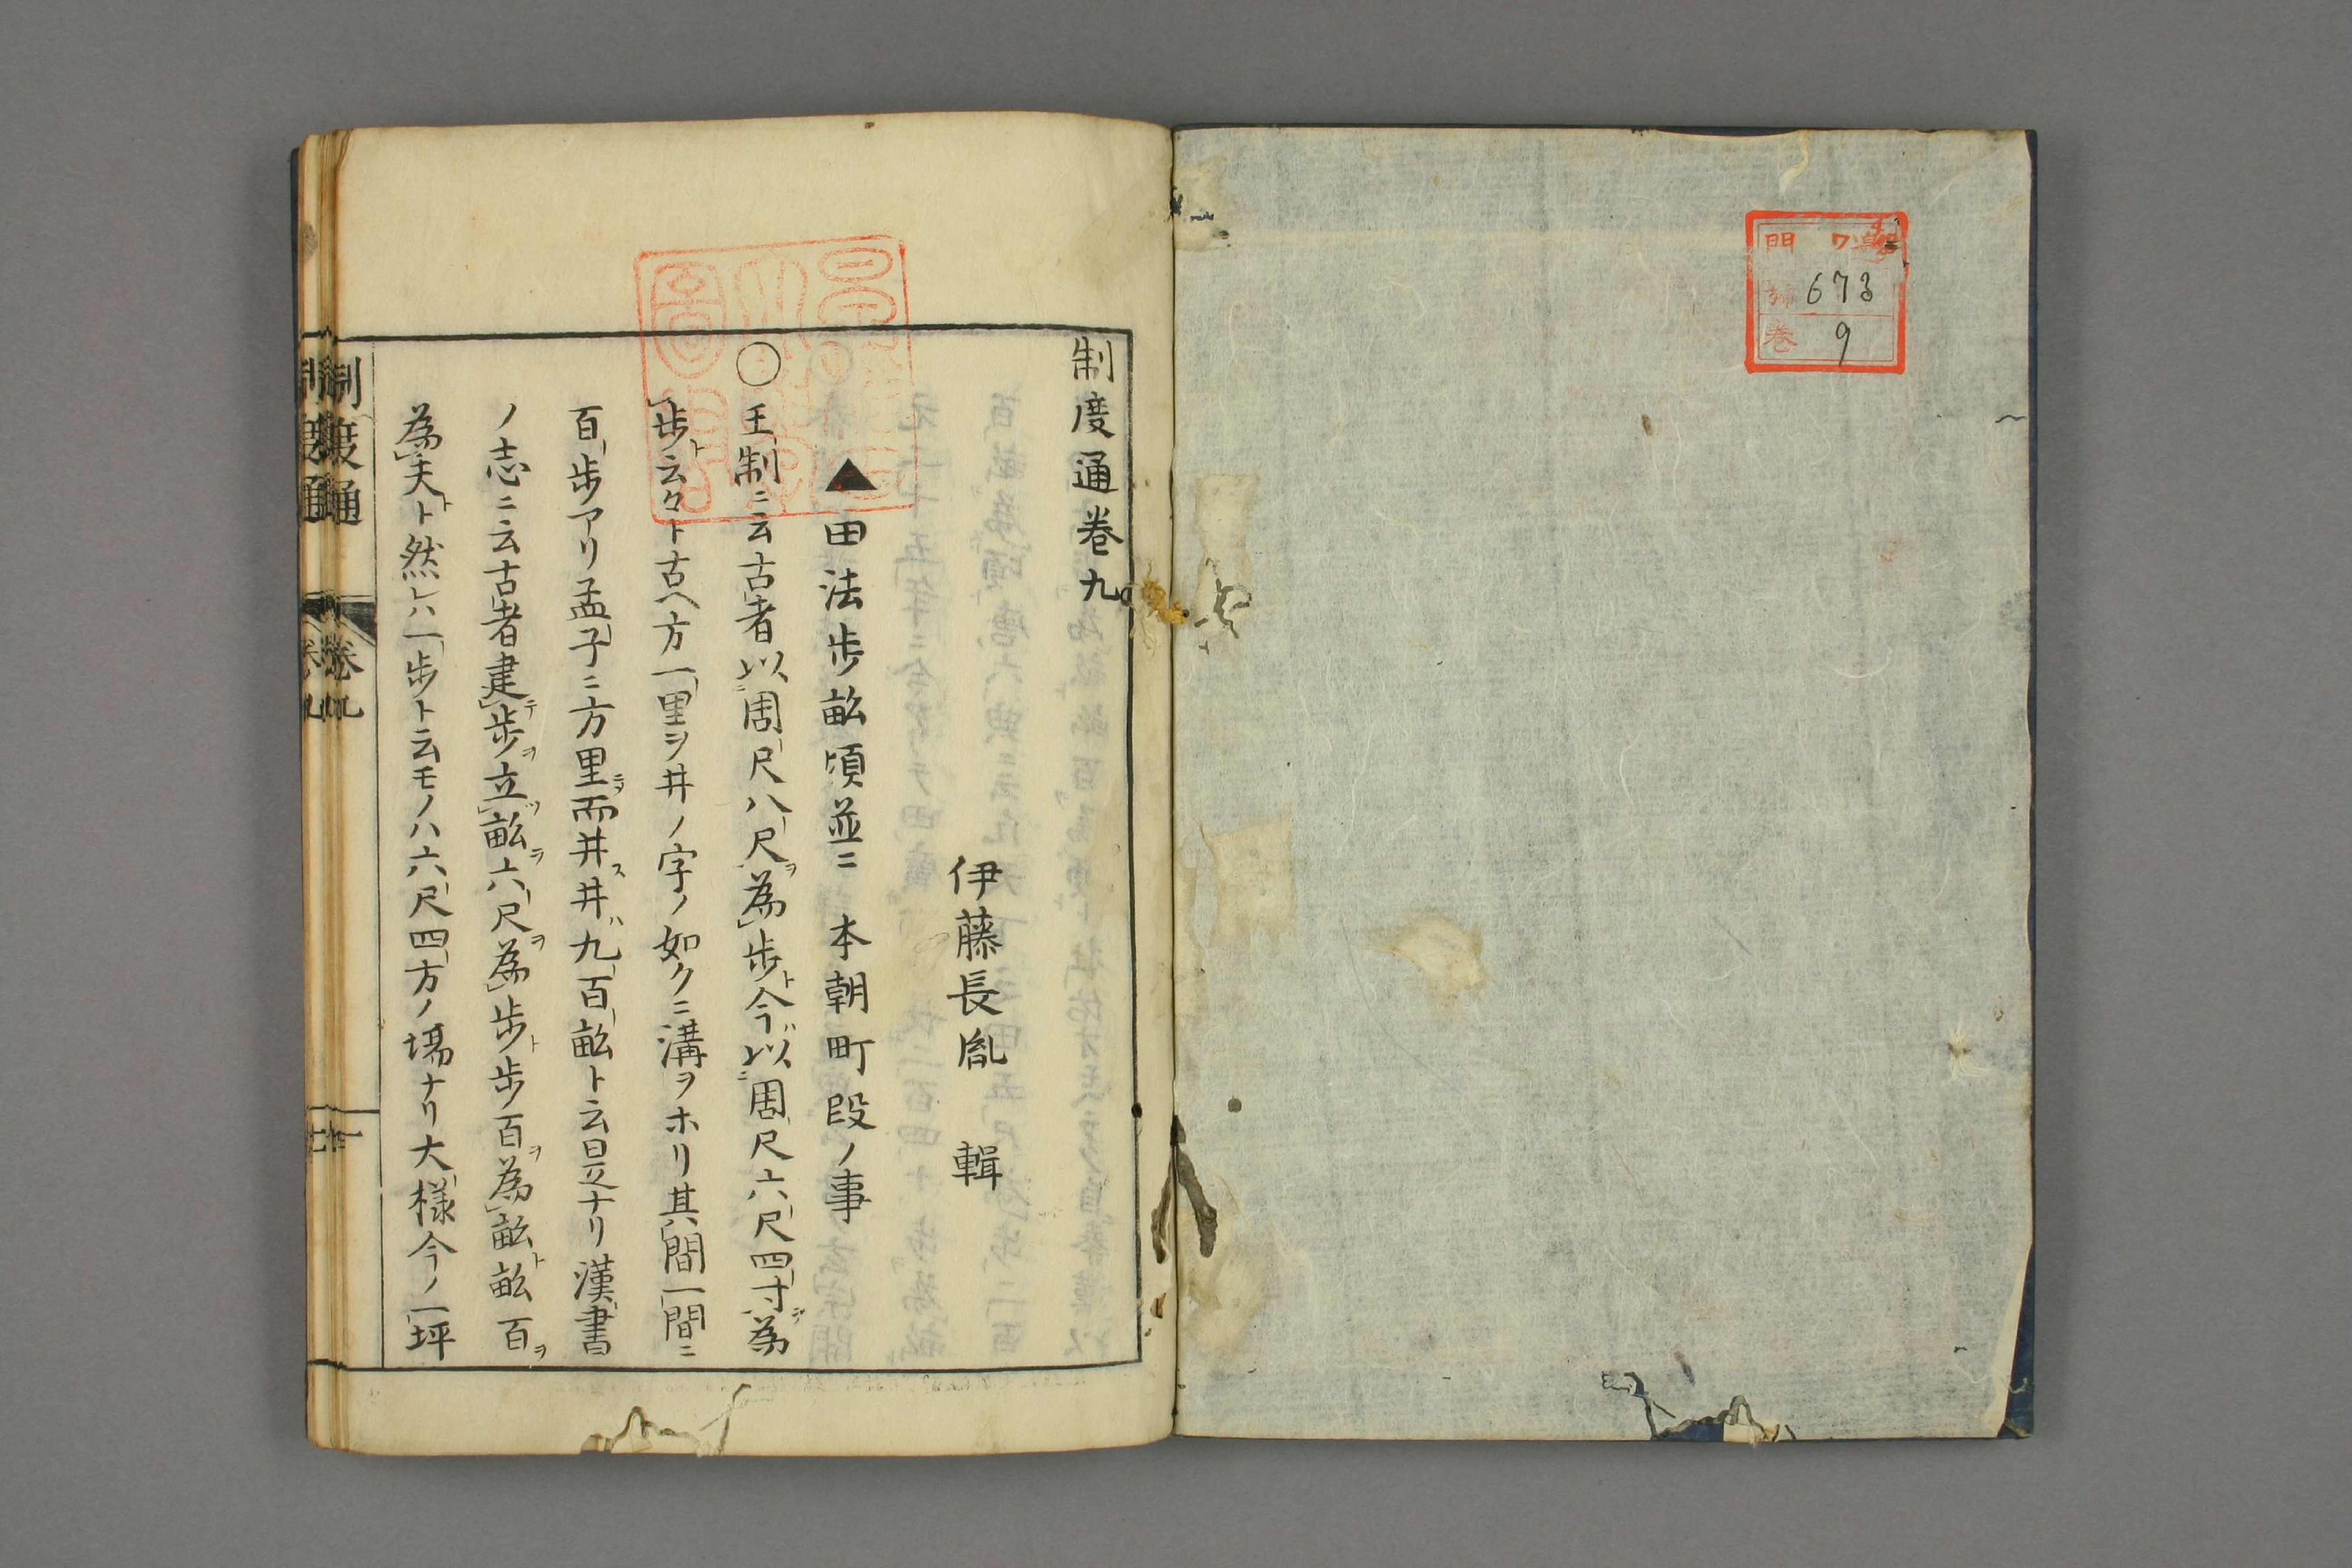 門 ワ
號 673
卷 9
制度通卷九
伊藤長胤 輯
▲田法歩畝頃並ニ 本朝町段ノ事
〇王制ニ云古者以周尺八尺ヲ為歩ト今ハ以周尺六尺四寸ヲ為
歩ト云々ト古ヘ方一里ヲ井ノ字ノ如クニ溝ヲホリ其間一間ニ
百歩アリ孟子ニ方里ニシテ而井ス井ハ九百畝ト云是ナリ漢書
ノ志ニ云古者建テ歩ヲ立ツ畝ヲ六尺ヲ為歩ト歩百ヲ為畝ト畝百ヲ
為夫ト然レハ一歩ト云モノハ六尺四方ノ塲ナリ大様今ノ一坪
制度通 卷九 一